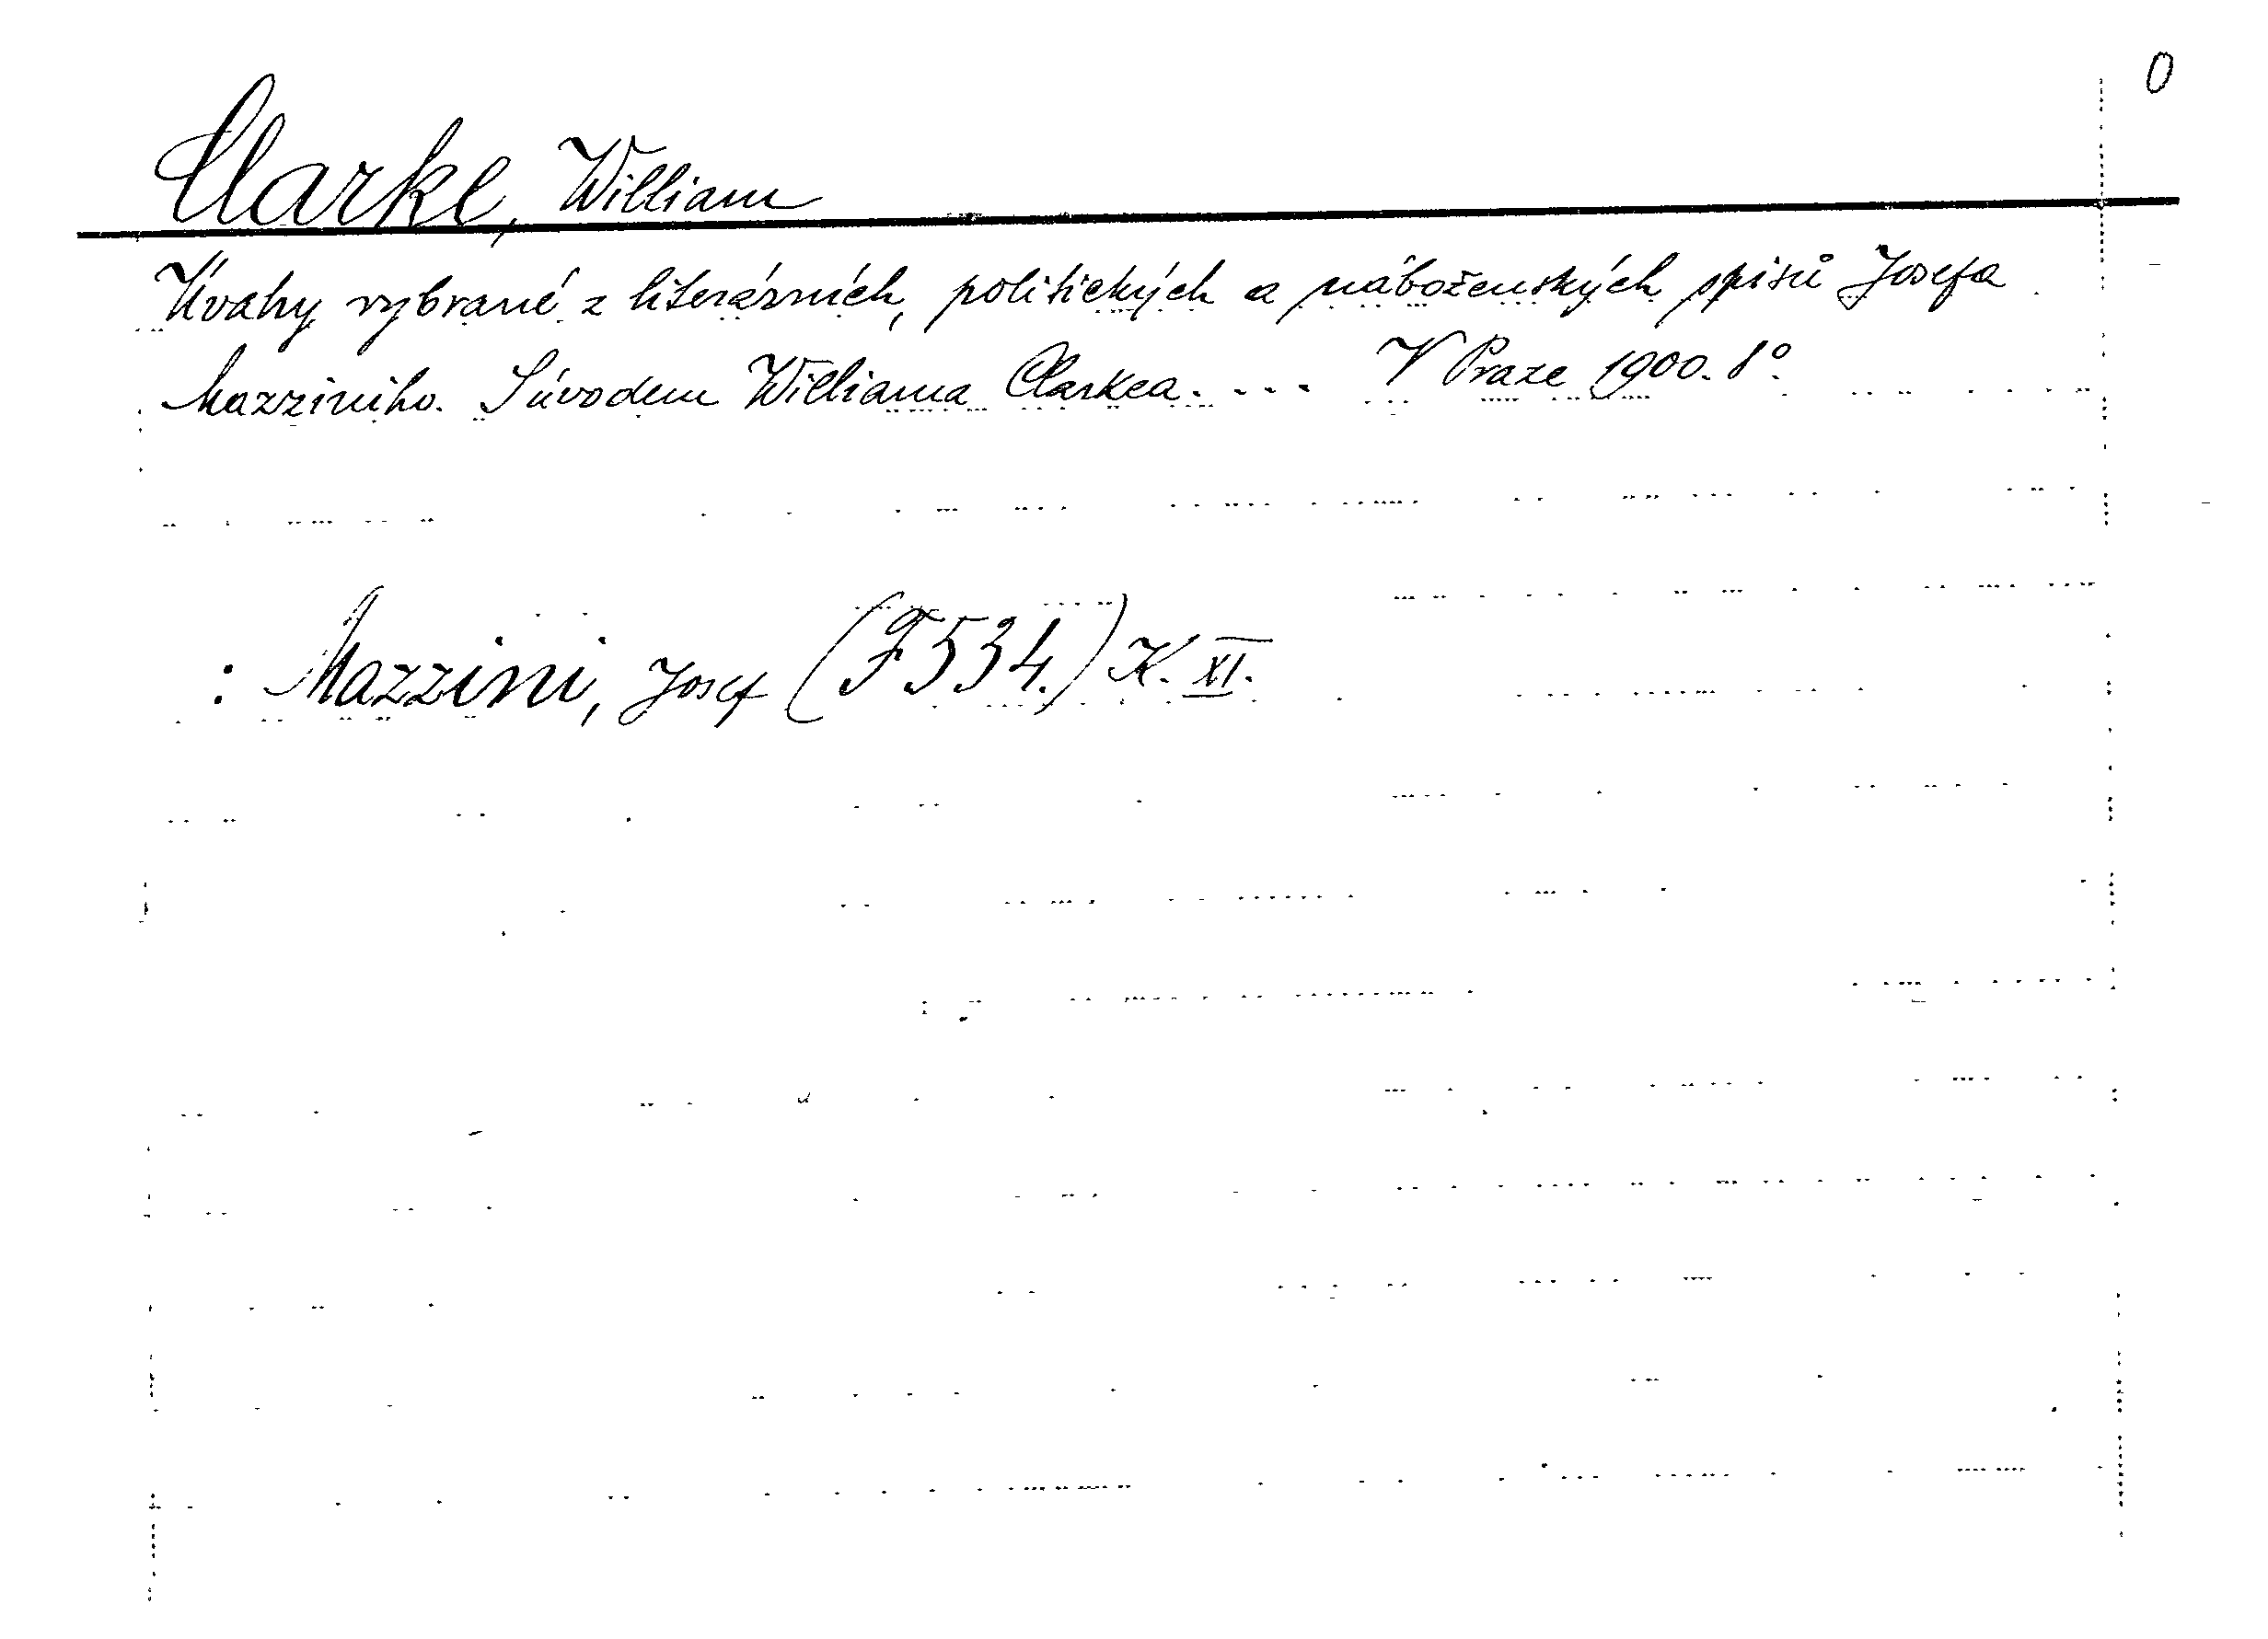 0
Clarke, William
Úvahy vybrané z literárních, politických a náboženských spisů Josefa
Mazziniho. S úvodem Williama Clarkea. - - - V Praze 1900. 8°.
: Mazzini, Josef (F 534.) K. XI.